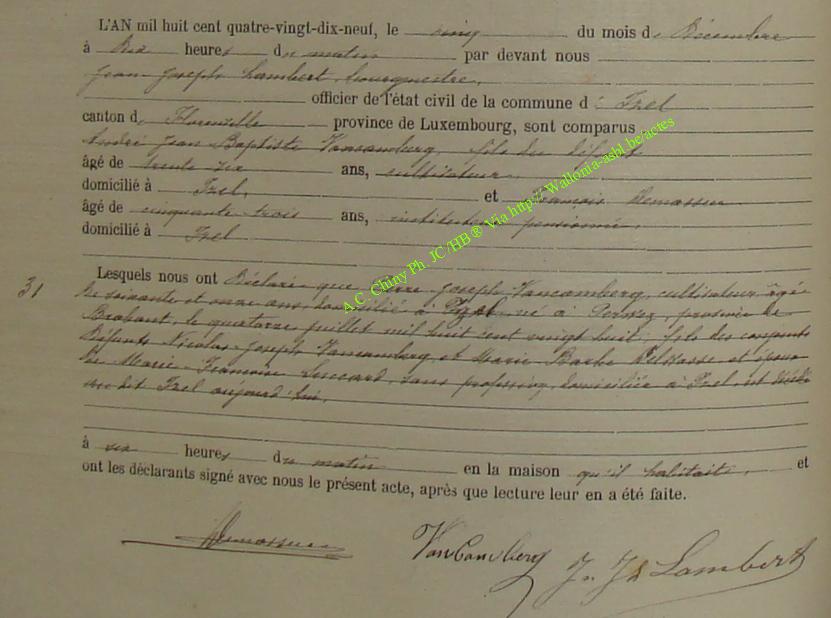 L'AN mil huit cent quatre-vingt-dix-neuf, le cinq du mois de Décembre
à dix heures du matin par devant nous
Jean Joseph Lambert, bourgmestre,
officier de l'état civil de la commune d' Izel
canton de Florenville province de Luxembourg, sont comparus
André Jean Baptiste Vancamberg, fils du défunt
âgé de trente six ans, cultivateur
domicilié à Izel, et François Demasseur
âgé de cinquante trois ans, instituteur pensionné,
domicilié à Izel
A.C. Chiny Ph. JC /HB® Via http:// Wallonia-asbl.be/actes
Lesquels nous ont Déclaré que Joseph Vancamberg, cultivateur, âgé
31
de soixante et onze ans, domicilié à Izel, né à Perwez, province de
Brabant, le quatorze juillet mil huit cent vingt huit, fils des conjoints
défunts Nicolas Joseph Vancamberg, et Marie Barbe Delvasse et époux
de Marie Françoise, sans profession, domiciliée à Izel, est décédé
au dit Izel aujourd'hui,
à six heures du matin en la maison qu'il habitait, et
ont les déclarants signé avec nous le présent acte, après que lecture leur en a été faite.
Vancamberg J. Jh Lambert